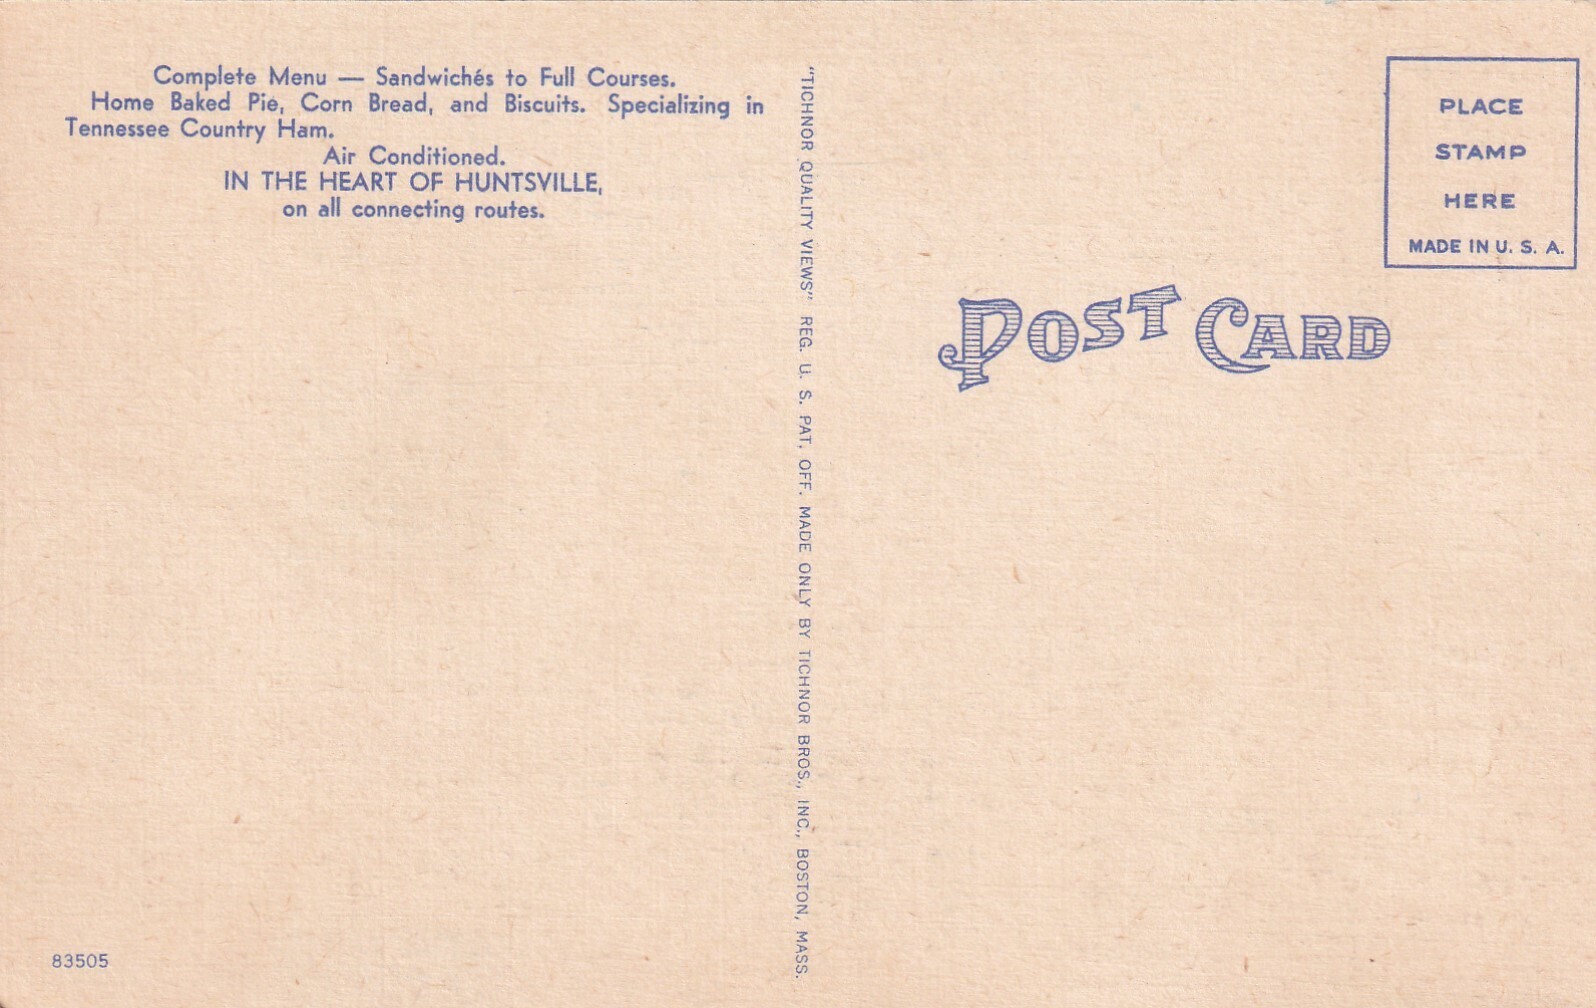 Complete Menu — Sandwichés to Full Courses.
Home Baked Pie, Corn Bread, and Biscuits. Specializing in
Tennessee Country Ham.
Air Conditioned.
IN THE HEART OF HUNTSVILLE,
on all connecting routes.
83505
"TICHNOR QUALITY VIEWS" REG. U. S. PAT. OFF. MADE ONLY BY TICHNOR BROS., INC., BOSTON, MASS.
POST CARD
PLACE
STAMP
HERE
MADE IN U. S. A.